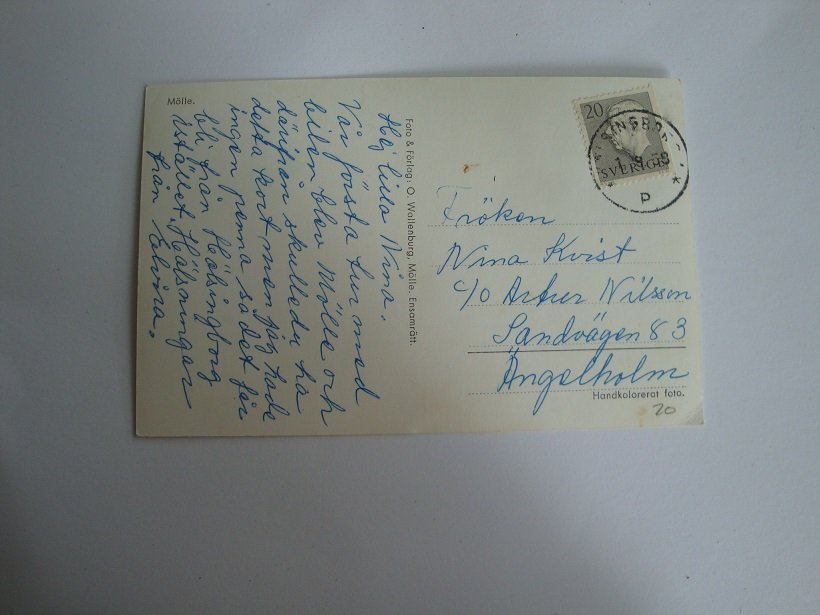 Mölle.
Hej lilla Nina.
Vår första tur med
bilen blev Mölle och
därifrån skulle du ha
detta kort men jag hade
ingen penna så det får
bli från Hälsingborg
istället. Hälsningar
från Elvira.
Foto & Förlag: O. Wallenburg, Mölle. Ensamrätt.
20
SVERIGE
Fröken
Nina Kvist
c/o Artur Nilsson
Sandvägen 83
Ängelholm
Handkolorerat foto.
20